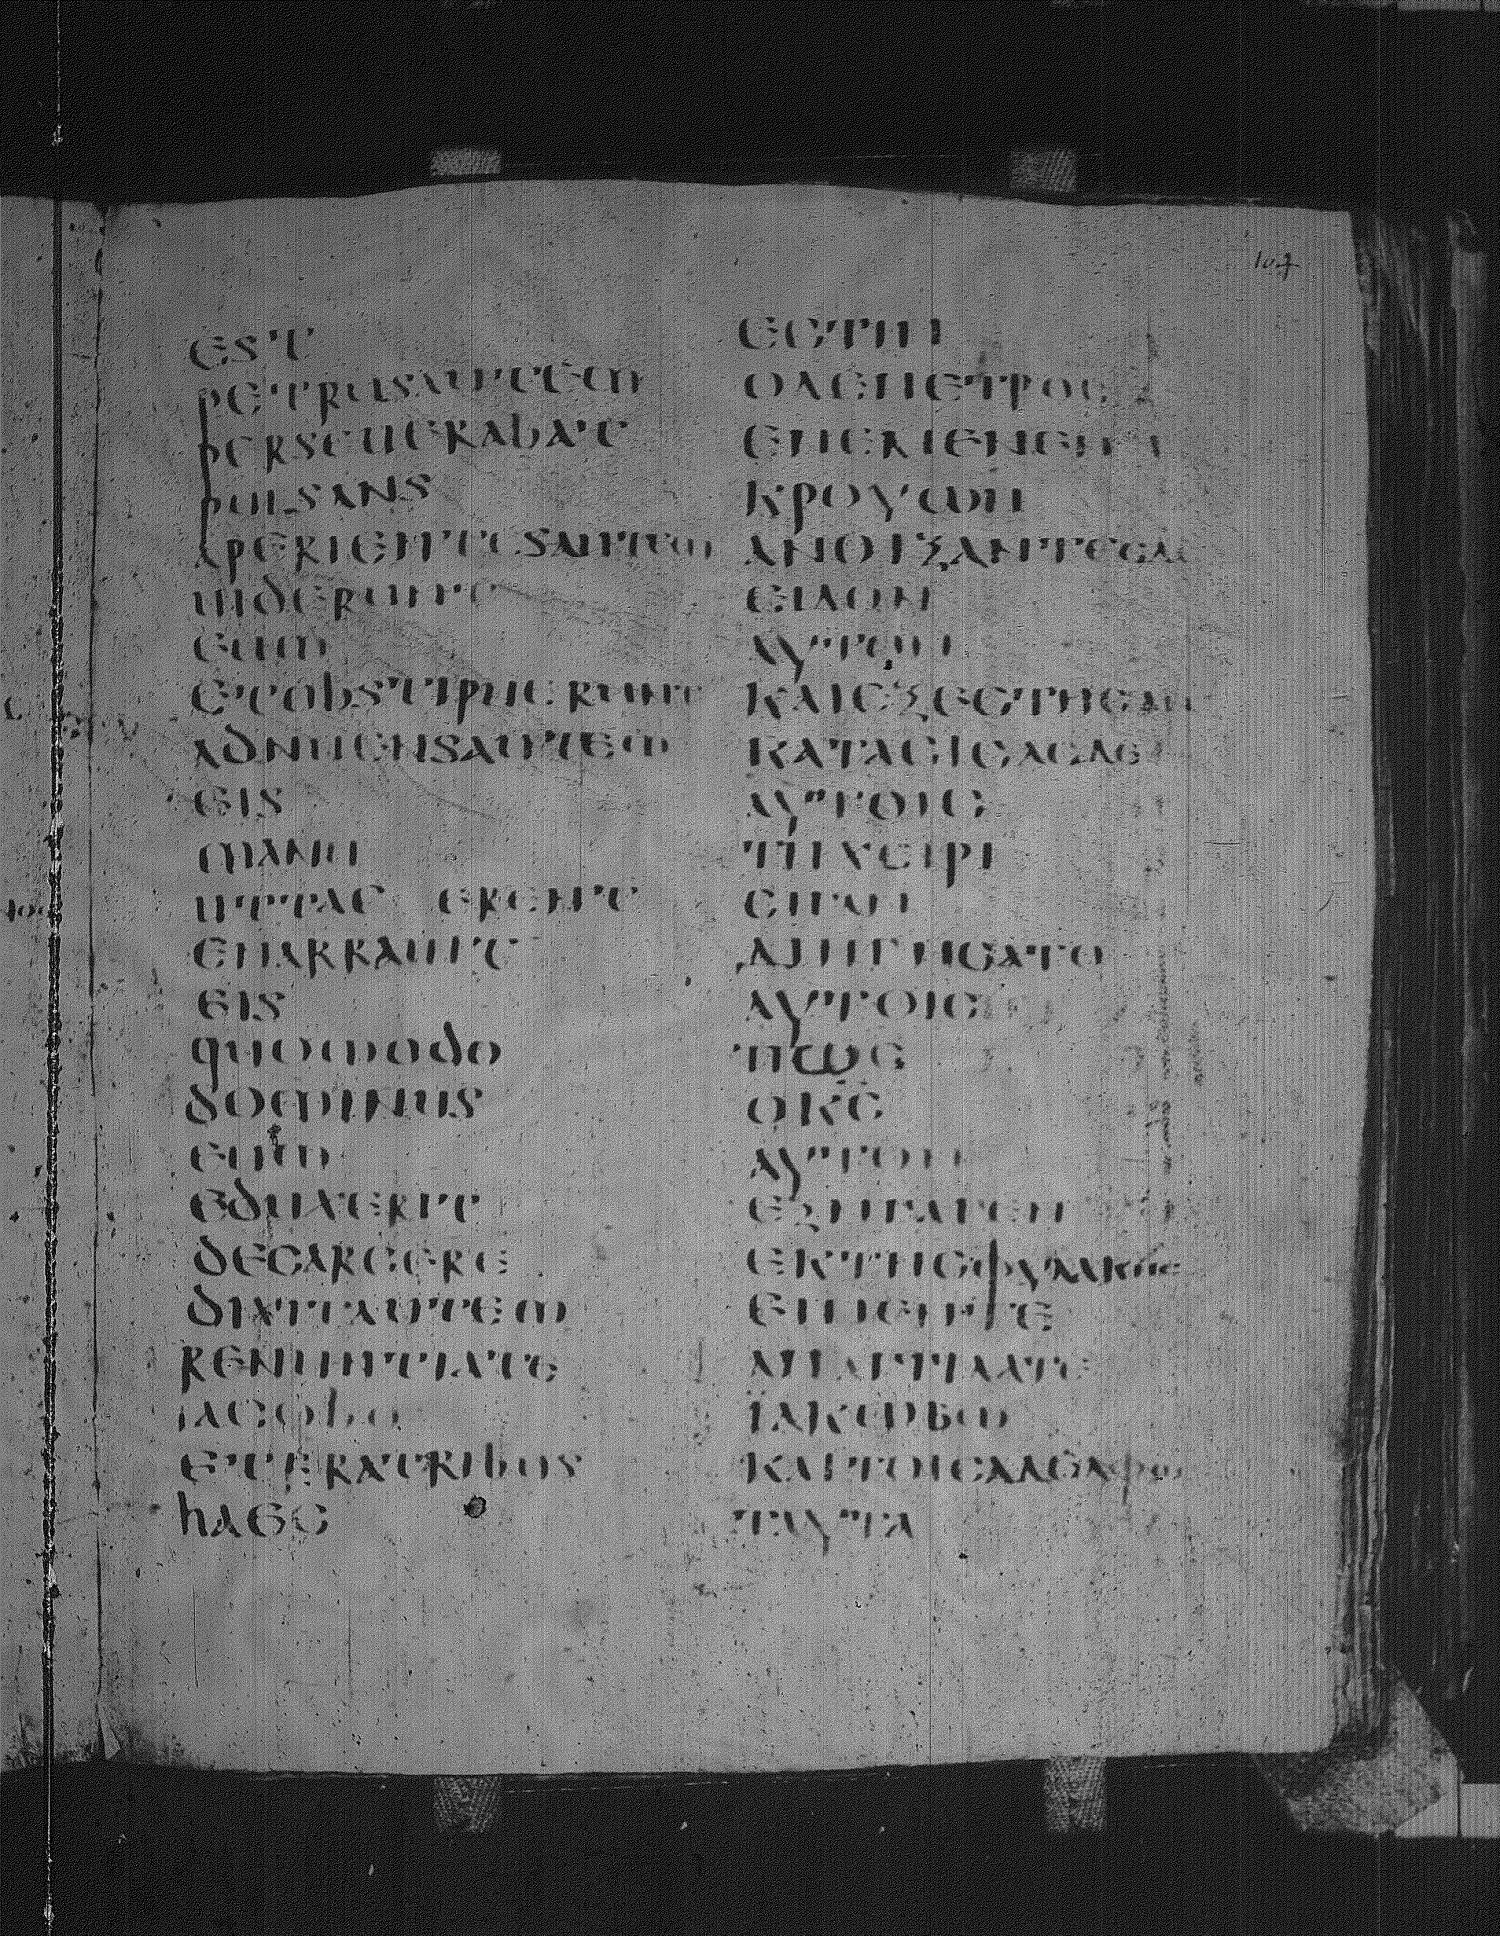 104
EST
PETRUSAUTEM
PERSEUERABAT
PULSANS
APERIENTESAUTEM
UIDERUNT
EUM
ETOBSTIPUERUNT
ADNUENSAUTEM
EIS
MANU
UTTAC ERENT
ENARRAUIT
EIS
QUOMODO
DOMINUS
EUM
EDUXERIT
DECARCERE
DIXITAUTEM
RENUNTIATE
IACOBO
ETFRATRIBUS
HAEC
ЄСΤΙΝ
ΟΔЄΠЄΤΡΟС
ЄΠЄΜЄΝЄΝ
ΚΡΟΥΩΝ
ΑΝΟΙΞΑΝΤЄСΔЄ
ЄΙΔΟΝ
ΑΥΤΟΝ
ΚΑΙЄΞЄСΤΗСΑΝ
ΚΑΤΑСΙСΑСΔЄ
ΑΥΤΟΙС
ΤΗΧЄΙΡΙ
СΙΓΑΝ
ΔΙΗΓΗСΑΤΟ
ΑΥΤΟΙС
ΠΩС
ΟΚС
ΑΥΤΟΝ
ЄΞΗΓΑΓЄΝ
ЄΚΤΗСΦΥΛΑΚΗС
ЄΙΠЄΝΤЄ
ΑΠΑΓΓΙΛΑΤЄ
ΪΑΚΩΒΩ
ΚΑΙΤΟΙСΑΔЄΛΦΟΙС
ΤΑΥΤΑ